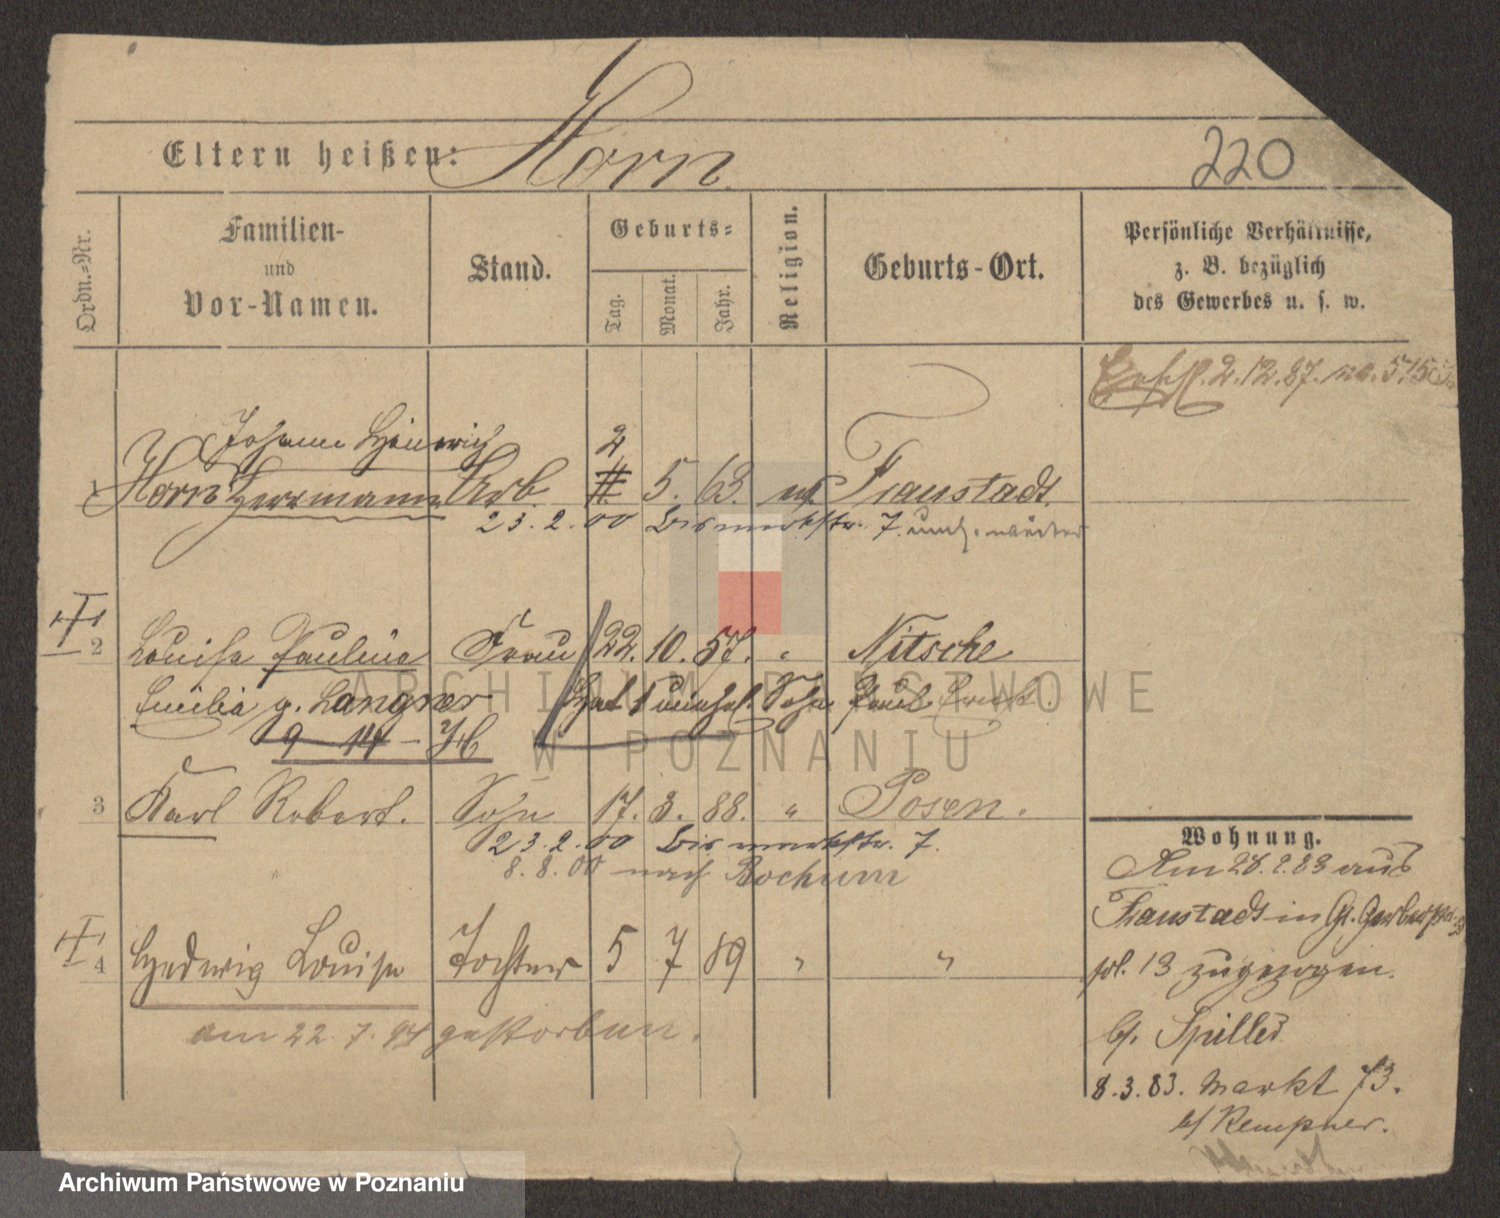 Eltern heißen: Horn
220
Ordn.-Nr.
Familien-
und
Vor-Namen.
Stand.
Geburts-
Tag.
Monat.
Jahr.
Religion.
Geburts-Ort.
Persönliche Verhältnisse,
z. B. bezüglich
des Gewerbes u. s. w.
2.12.87. no. 515
Johann Heinrich
1 Horn Herrmann Arb. 2 5. 63. Fraustadt
23.2.00 Bismarkstr. 7.
2 Louise Pauline Frau 22. 10. 57. " Nitsche
Emilie g. Langner Hat 1 Sohn
9 14
3 Karl Robert. Sohn 17. 3. 88. " Posen.
23.2.00 Bismarkstr. 7.
8.8.00 nach Bochum
4 Hedwig Louise Tochter 5 7 89 " "
am 22.7.94 gestorben.
Wohnung.
Am 28.2.83 aus
Fraustadt in Gr. Gerberstr.
pol. 13 zugezogen.
b/. Spiller
8.3.83. Markt 73.
b/ Kempner.
ARCHIWUM PAŃSTWOWE
W POZNANIU
Archiwum Państwowe w Poznaniu